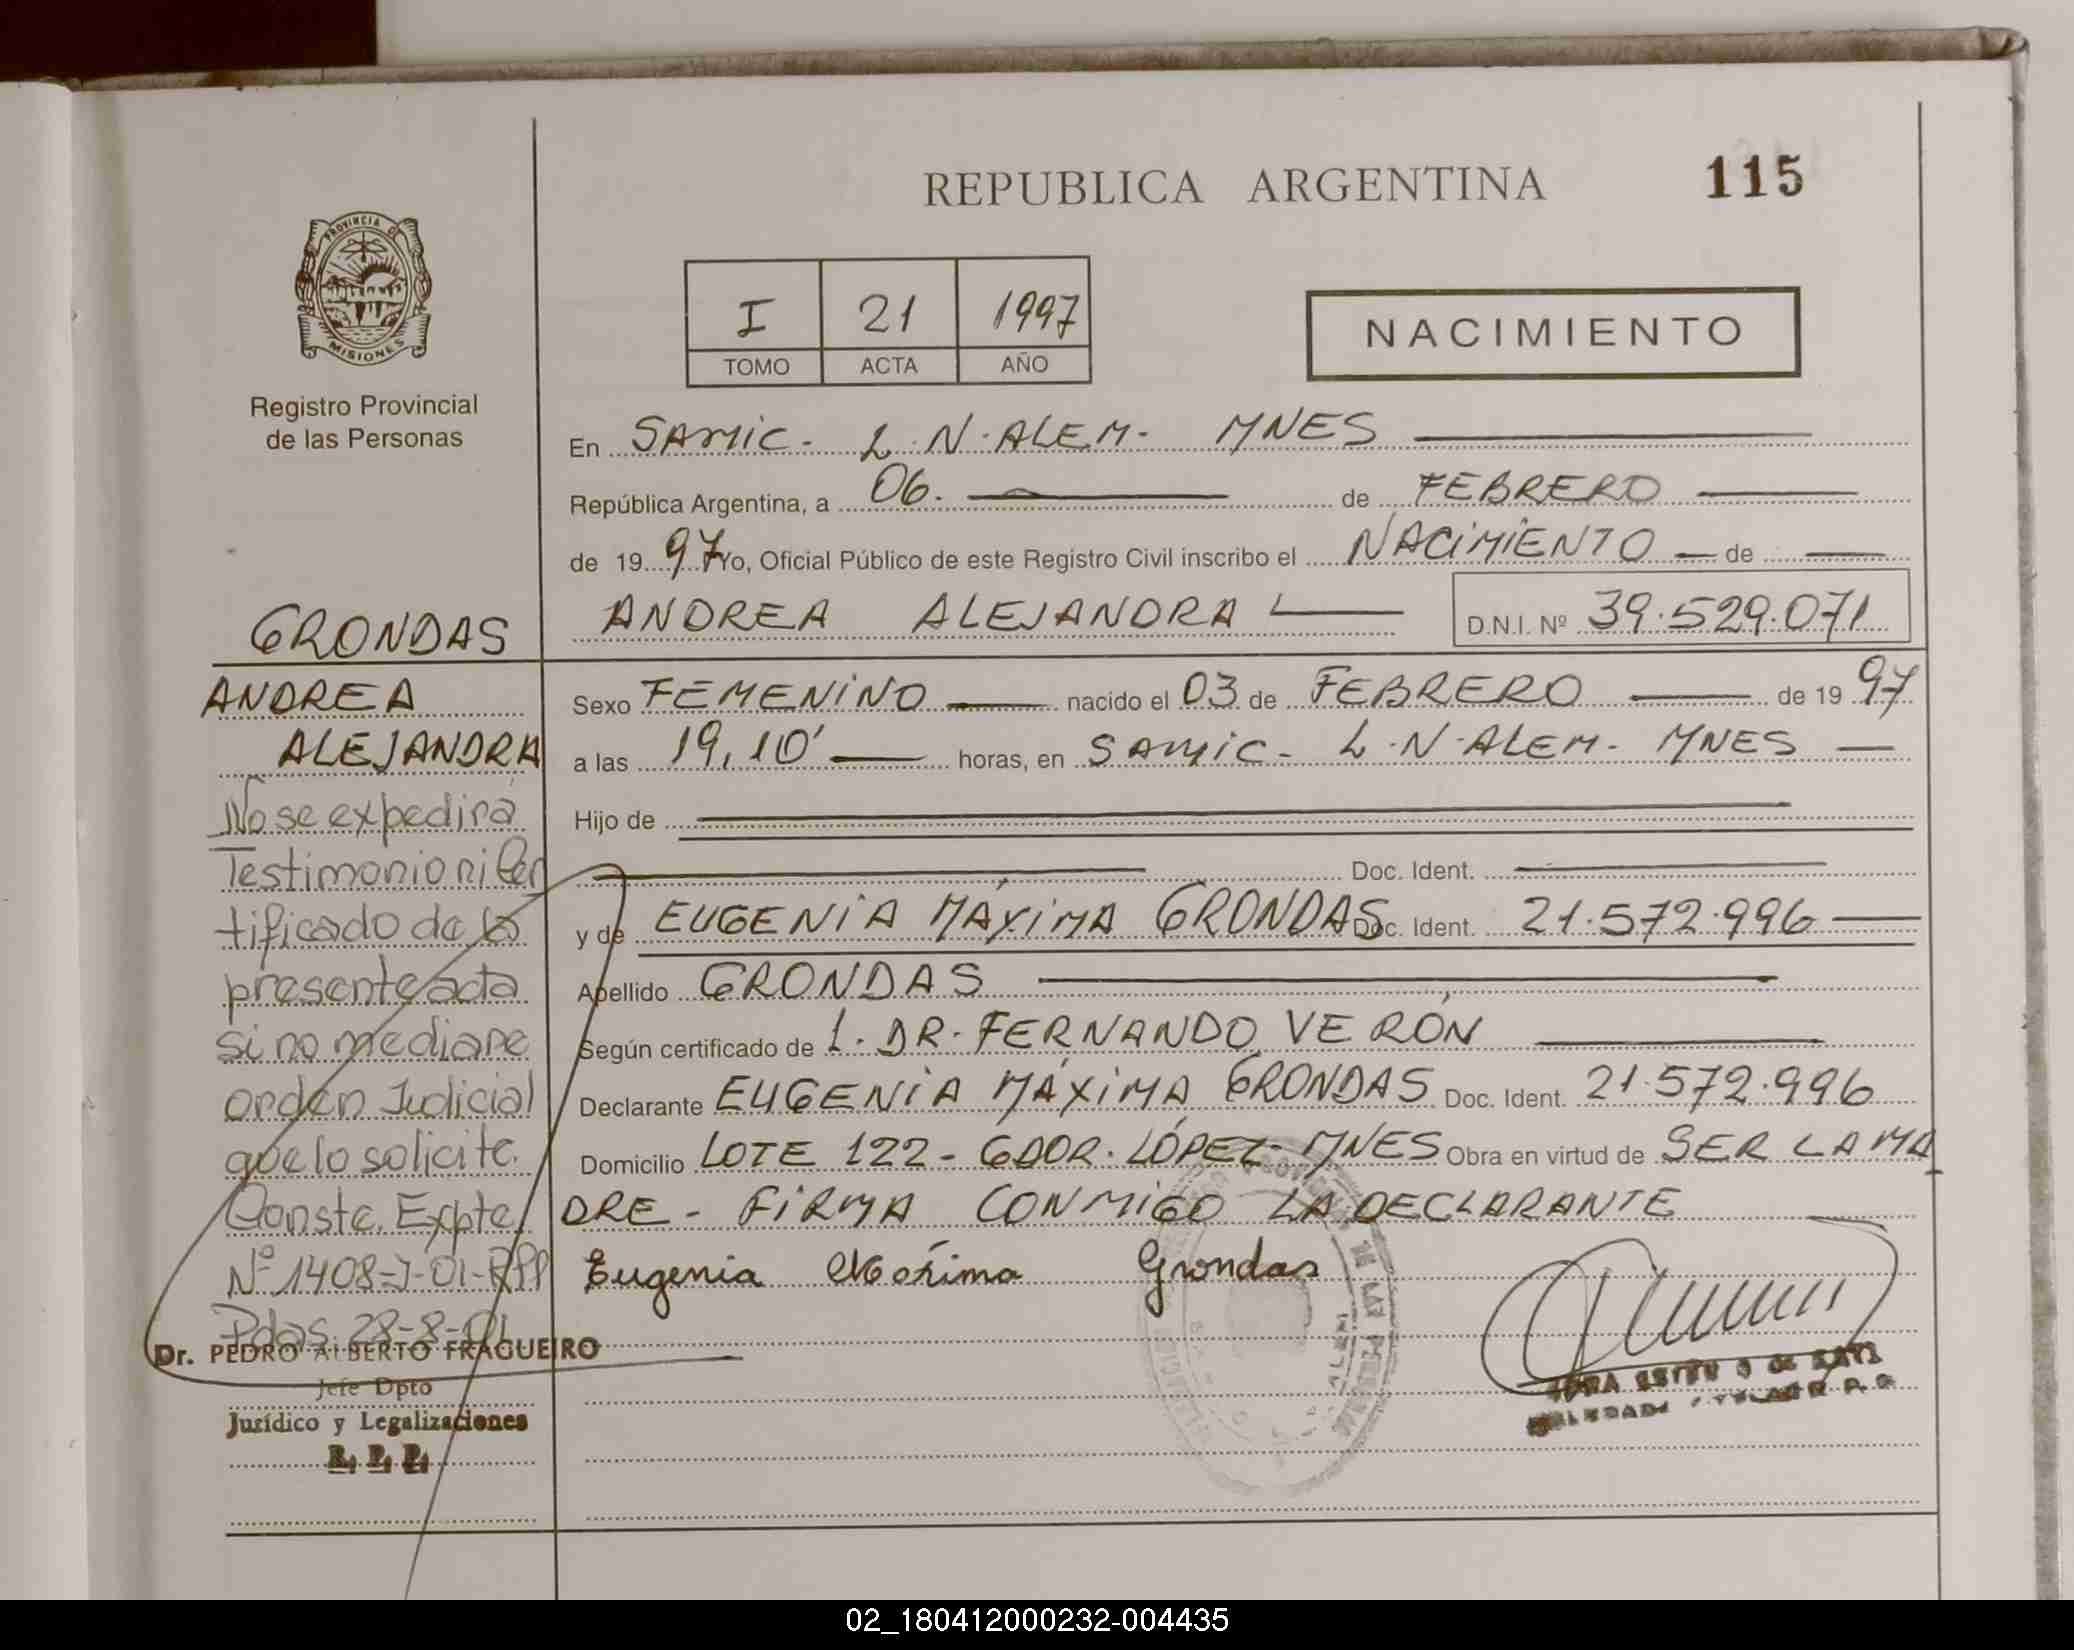 REPUBLICA ARGENTINA
115
PROVINCIA DE
MISIONES
Registro Provincial
de las Personas
I 21 1997
TOMO ACTA AÑO
NACIMIENTO
En SAMIC - L.N. ALEM - MNES
República Argentina, a 06. de FEBRERO
de 1997 Yo, Oficial Público de este Registro Civil inscribo el NACIMIENTO de
ANDREA ALEJANDRA D.N.I. Nº 39.529.071
Sexo FEMENINO nacido el 03 de FEBRERO de 1997
a las 19,10' horas, en SAMIC - L.N. ALEM - MNES
Hijo de
Doc. Ident.
y de EUGENIA MÁXIMA GRONDAS Doc. Ident. 21.572.996
Apellido GRONDAS
Según certificado de L. DR. FERNANDO VERÓN
Declarante EUGENIA MÁXIMA GRONDAS Doc. Ident. 21.572.996
Domicilio LOTE 122 - GDOR. LÓPEZ - MNES Obra en virtud de SER LA MA
DRE - FIRMA CONMIGO LA DECLARANTE
Eugenia Máxima Grondas
GRONDAS
ANDREA
ALEJANDRA
No se expedirá
Testimonio ni Cer
tificado de la
presente acta
si no mediare
orden Judicial
que lo solicite.
Conste. Expte
Nº 1408-J-01-RPP
Pdas. 28-8-01
Dr. PEDRO ALBERTO FRAGUEIRO
Jefe Dpto
Jurídico y Legalizaciones
R. P. P.
02_180412000232-004435